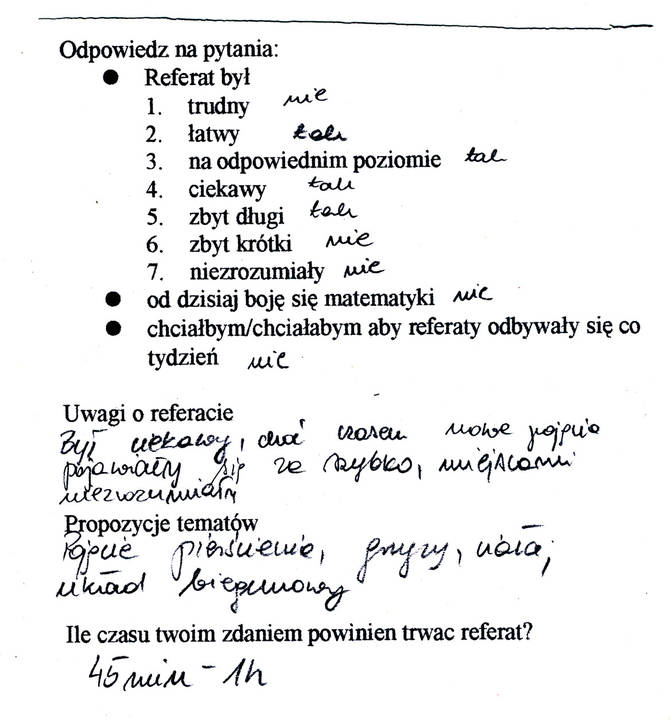 Odpowiedz na pytania:
● Referat był
1. trudny nie
2. łatwy tak
3. na odpowiednim poziomie tak
4. ciekawy tak
5. zbyt długi tak
6. zbyt krótki nie
7. niezrozumiały nie
● od dzisiaj boję się matematyki nie
● chciałbym/chciałabym aby referaty odbywały się co
tydzień nie
Uwagi o referacie
Był ciekawy, choć czasem nowe pojęcia
pojawiały się za szybko, miejscami
niezrozumiały
Propozycje tematów
Pojęcie pierścienia, grupy, ciała,
układ biegunowy
Ile czasu twoim zdaniem powinien trwac referat?
45 min - 1h